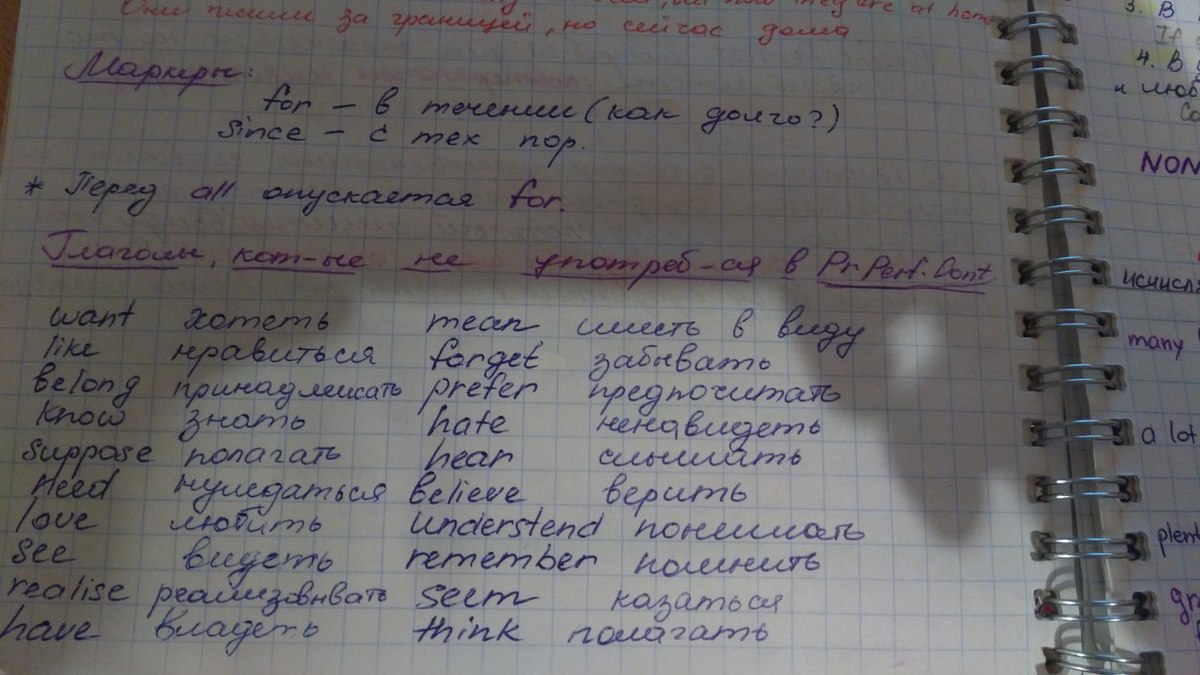 now they are at home
Они жили за границей, но сейчас дома.
Маркеры:
for – в течении (как долго?)
since – с тех пор.
* Перед all опускается for.
Глаголы, кот-ые не употреб-ся в Pr. Perf. Cont.
want хотеть mean иметь в виду
like нравиться forget забывать
belong принадлежать prefer предпочитать
know знать hate ненавидеть
suppose полагать hear слышать
need нуждаться believe верить
love любить understend понимать
see видеть remember помнить
realise реализовывать seem казаться
have владеть think полагать
3. В
If
4. В
и люб
Co
NON
исчисля
many
a lot
plent
gr